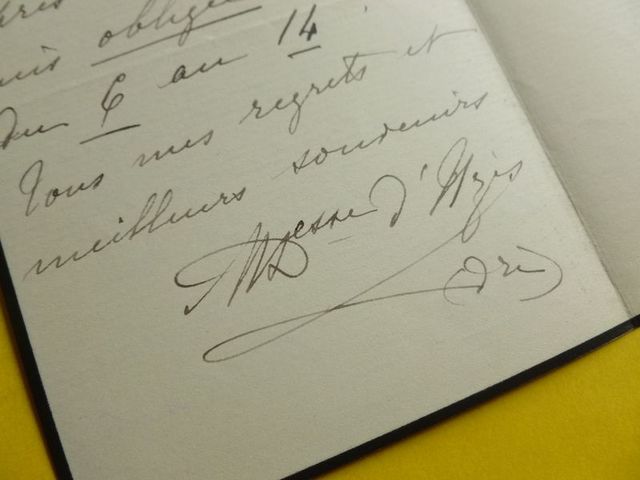 obligé
du 6 au 14
Tous mes regrets et
meilleurs souvenirs
Desse d'Uzès
dri